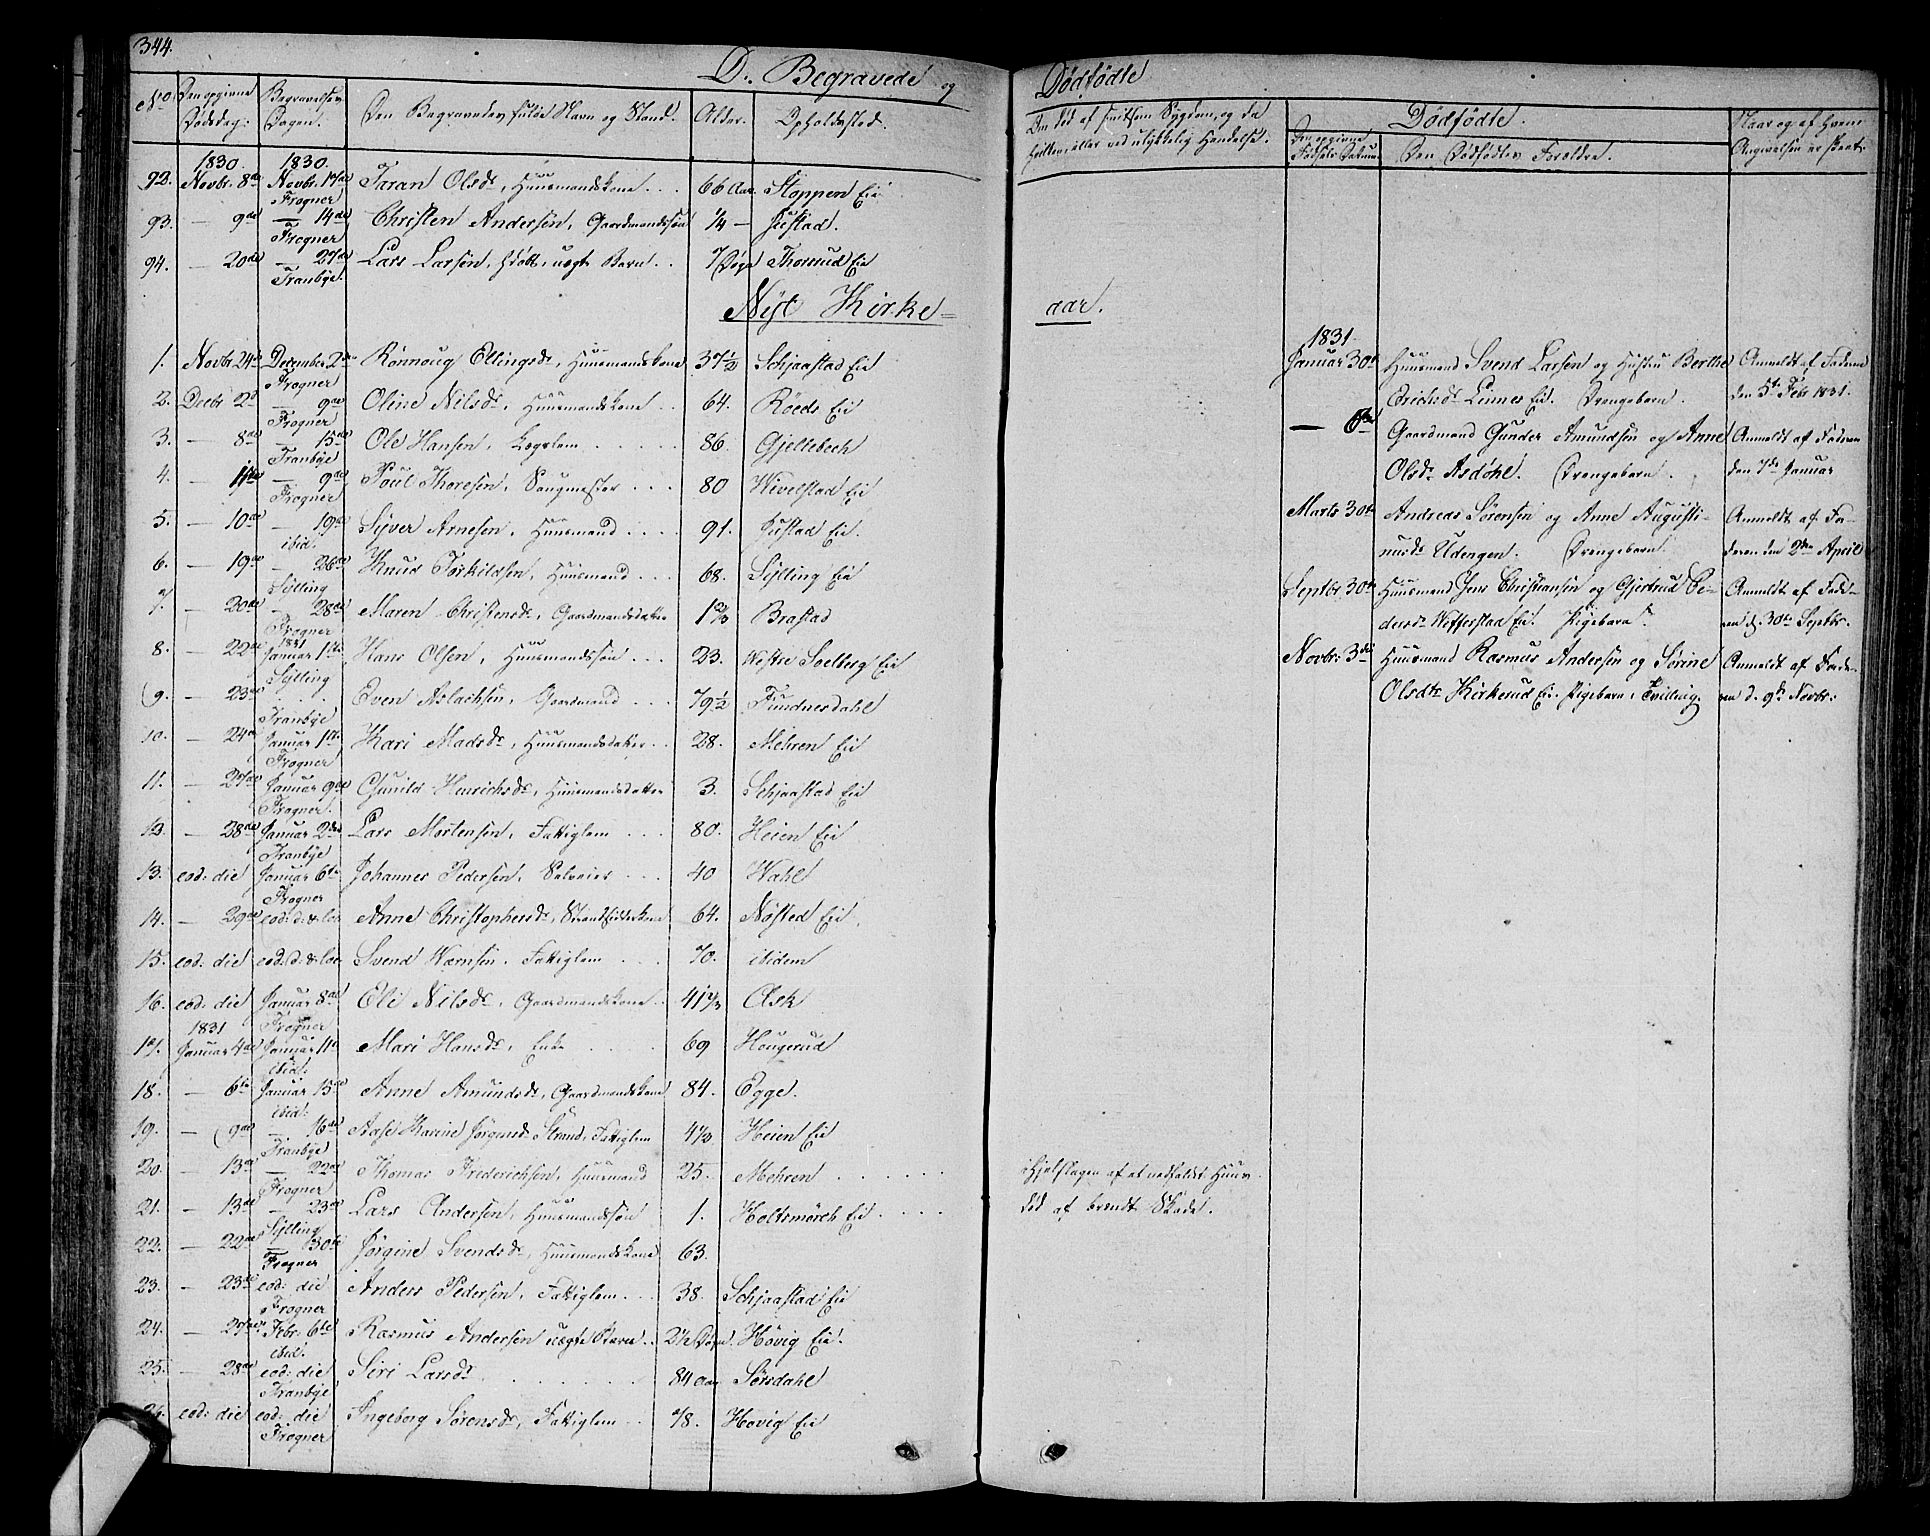 344.
D. Begravede og Dødfødte
No. Den opgivne Dødsdag: Begravelses Dagen. Den Begravedes fulde Navn og Stand. Alder. Opholdssted.
Om død af smitsom Sygdom, og da hvilken, eller ved ulykkelig Hændelse.
Dødfødte.
Den opgivne Fødsels Datum Den Dødfødtes Forældre.
Naar og af hvem Angivelsen er skeet.
1830. 1830.
92. Novbr. 8de Novbr. 17de Taran Olsdr, Huusmandskone . . . 66 Aar Stoppen Eie
Frogner
93. — 9de — 14de Christen Andersen, Gaardmandssøn 1/4 — Justad.
Frogner
94. — 20de — 27de Lars Larsen, uægte Barn . . 7 Døgn Thorsrud Eie
Tranbye.
Nyt Kirke=aar.
1. Novbr. 24de December 2den Rønnoug Ellingsdr, Huusmandskone 37 1/2 Schjaastad Eie
Frogner
2. Decbr 2d — 9de Oline Nilsdr, Huusmandskone . . 64. Røeds Eie
Frogner
3. — 8de — 15de Ole Hansen, Lægslem . . . . . 86. Gjellebech
Tranbye
4. — — 9de Poul Thoresen, Saugmester . . . 80 Wivelstad Eie
Frogner
5. — 10de — 19de Syver Arnesen, Huusmand . . . . 91. Justad Eie.
ibid.
6. — 19de — 26de Knud Torkildsen, Huusmand . . . 68. Sylling Eie
Sylling
7. — 20de — 28de Maren Christensdr, Gaardmandsdatter 1 2/3 Brastad
Frogner
1831
8. — 22de Januar 1ste Hans Olsen, Huusmandssøn . . . 23. Westre Solberg Eie
Sylling
9. — 23de . . . Even Aslachsen, Gaardmand . . . 79 1/2 Tundnesdahl
Tranbye
10. — 24de Januar 1ste Kari Madsdr, Huusmandsdatter . . 28. Mehren Eie
Frogner
11. — 27de Januar 9de Gunild Henrichsdr, Huusmandsdatter 3. Schjaastad Eie
Frogner.
12. — 28de Januar 2den Lars Mortensen, Fattiglem . . . 80. Heien Eie
Tranbye
13. eod: die Januar 6te Johannes Pedersen, Selveier . . . 40 Wahl
Frogner
14. — 29de eod: d: & loc Anne Christophersdr, Strandsidderkone 64. Nøsted Eie.
15. eod: die eod: d: & loc Svend Wærnsen, Fattiglem . . . 70. ibidem
16. eod: die Januar 8de Eli Nilsdr, Gaardmandskone . . 41 2/3 Ask
1831 Frogner
17. Januar 4de Januar 11te Mari Hansdr, Enke . . . . 69 Hougerud
ibid.
18. — 6te Januar 15de Anne Amundsdr, Gaardmandskone 84. Egge.
ibid.
19. — 9de — 16de Aase Karine Jørgensdr Strand, Fattiglem 4 1/3 Heien Eie
Tranbye
20. — 13de — 22de Thomas Frederichsen, Huusmand 25. Mehren . . . . . ihjelslagen af et nedfaldet Huus.
Frogner
21. — 13de — 23de Lars Andersen, Huusmandssøn . . 1. Holtsmarch Eie . . . . død af brændt Skade.
Sylling
22. — 22de — 30te Jørgine Svendsdr, Huusmandskone 63.
Frogner
23. — 23de eod: die Anders Pedersen, Fattiglem . . . 38. Schjaastad Eie
Frogner
24. — 27de Febr: 6te Rasmus Andersen uægte Barn . . 2 1/2 Døgn. Høvig Eie.
ibid.
25. — 28de eod: die Siri Larsdr . . . . . . . 84 Aar Sørsdahl
Tranbye
26. eod: die eod: die Ingeborg Sørensdr, Fattiglem . . 78. Høvig Eie
Frogner
1831.
Januar 30te Huusmand Svend Larsen og Hustru Berthe Anmeldt af Faderen
Erichsdr Linnes Eie. Drengebarn. den 5te Febr 1831.
— 6te Gaardmand Gunder Amundsen og Anne Anmeldt af Faderen
Olsdr Asdøhl. Drengebarn. den 7de Januar
Marts 30te Andreas Sørensen og Anne Augusti- Anmeldt af Fa-
nusdr Udengen. Drengebarn. deren den 2den April
Septbr 30te Huusmand Jens Christiansen og Gjertrud Pe- Anmeldt af Fade-
dersdr Wefferstad Eie. Pigebarn. ren d. 30te Septbr.
Novbr: 3die Huusmand Rasmus Andersen og Sørine Anmeldt af Fade-
Olsdtr Kirkerud Eie. Pigebarn. Tvilling. ren d. 9de Novbr: